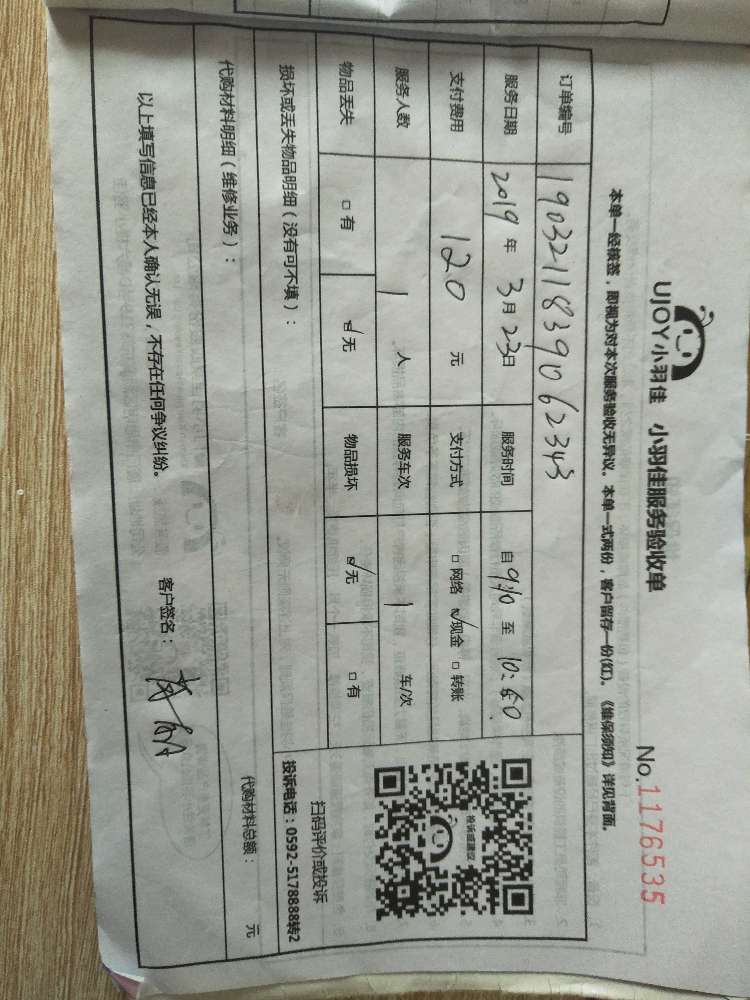 UJOY小羽佳 小羽佳服务验收单
No.1176535
本单一经核签，即视为对本次服务验收无异议。本单一式两份，客户留存一份(红)。《维保须知》详见背面。
订单编号 1903211839062343
服务日期 2019 年 3 月 23 日 服务时间 自 9:10 至 10:50
支付费用 120 元 支付方式 □ 网络 ☑ 现金 □ 转账
服务人数 1 人 服务车次 1 车/次
物品丢失 □ 有 ☑ 无 物品损坏 ☑ 无 □ 有
投诉或建议
扫码评价或投诉
投诉电话：0592-5178888转2
损坏或丢失物品明细（没有可不填）：
代购材料明细（维修业务）：
代购材料总额： 元
以上填写信息已经本人确认无误，不存在任何争议纠纷。 客户签名：